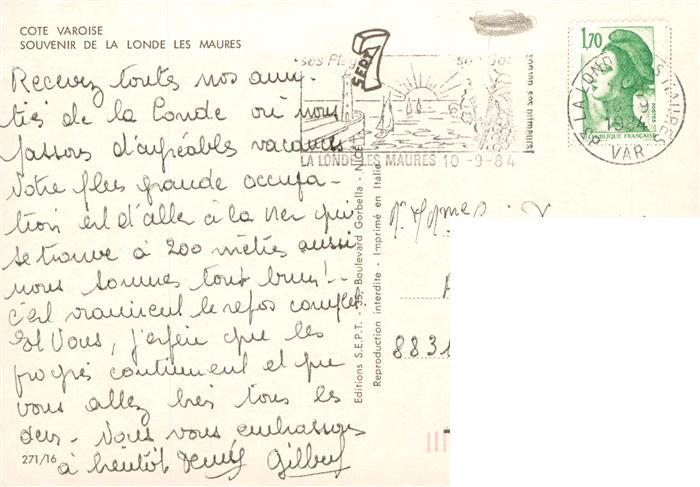 COTE VAROISE
SOUVENIR DE LA LONDE LES MAURES
Recevez toutes nos ami-
tiés de la Londe où nous
passons d'agréables vacances
Notre plus grande occupa-
tion est d'aller à la mer qui
se trouve à 200 mètres aussi
nous sommes tout bruns!
c'est vraiment le repos complet
Et Vous, j'espère que les
progrès continuent et que
vous allez très tous les
deux - Nous vous embrassons
à bientôt Denis Gilbert
271/16
SEPT
LA LONDE LES MAURES 10-9-84
Editions S.E.P.T. - 35, Boulevard Gorbella - NICE
Reproduction interdite - Imprimé en Italie
1,70
POSTES
REPUBLIQUE FRANÇAISE
LA LONDE LES MAURES
10-9
1984
VAR
8831